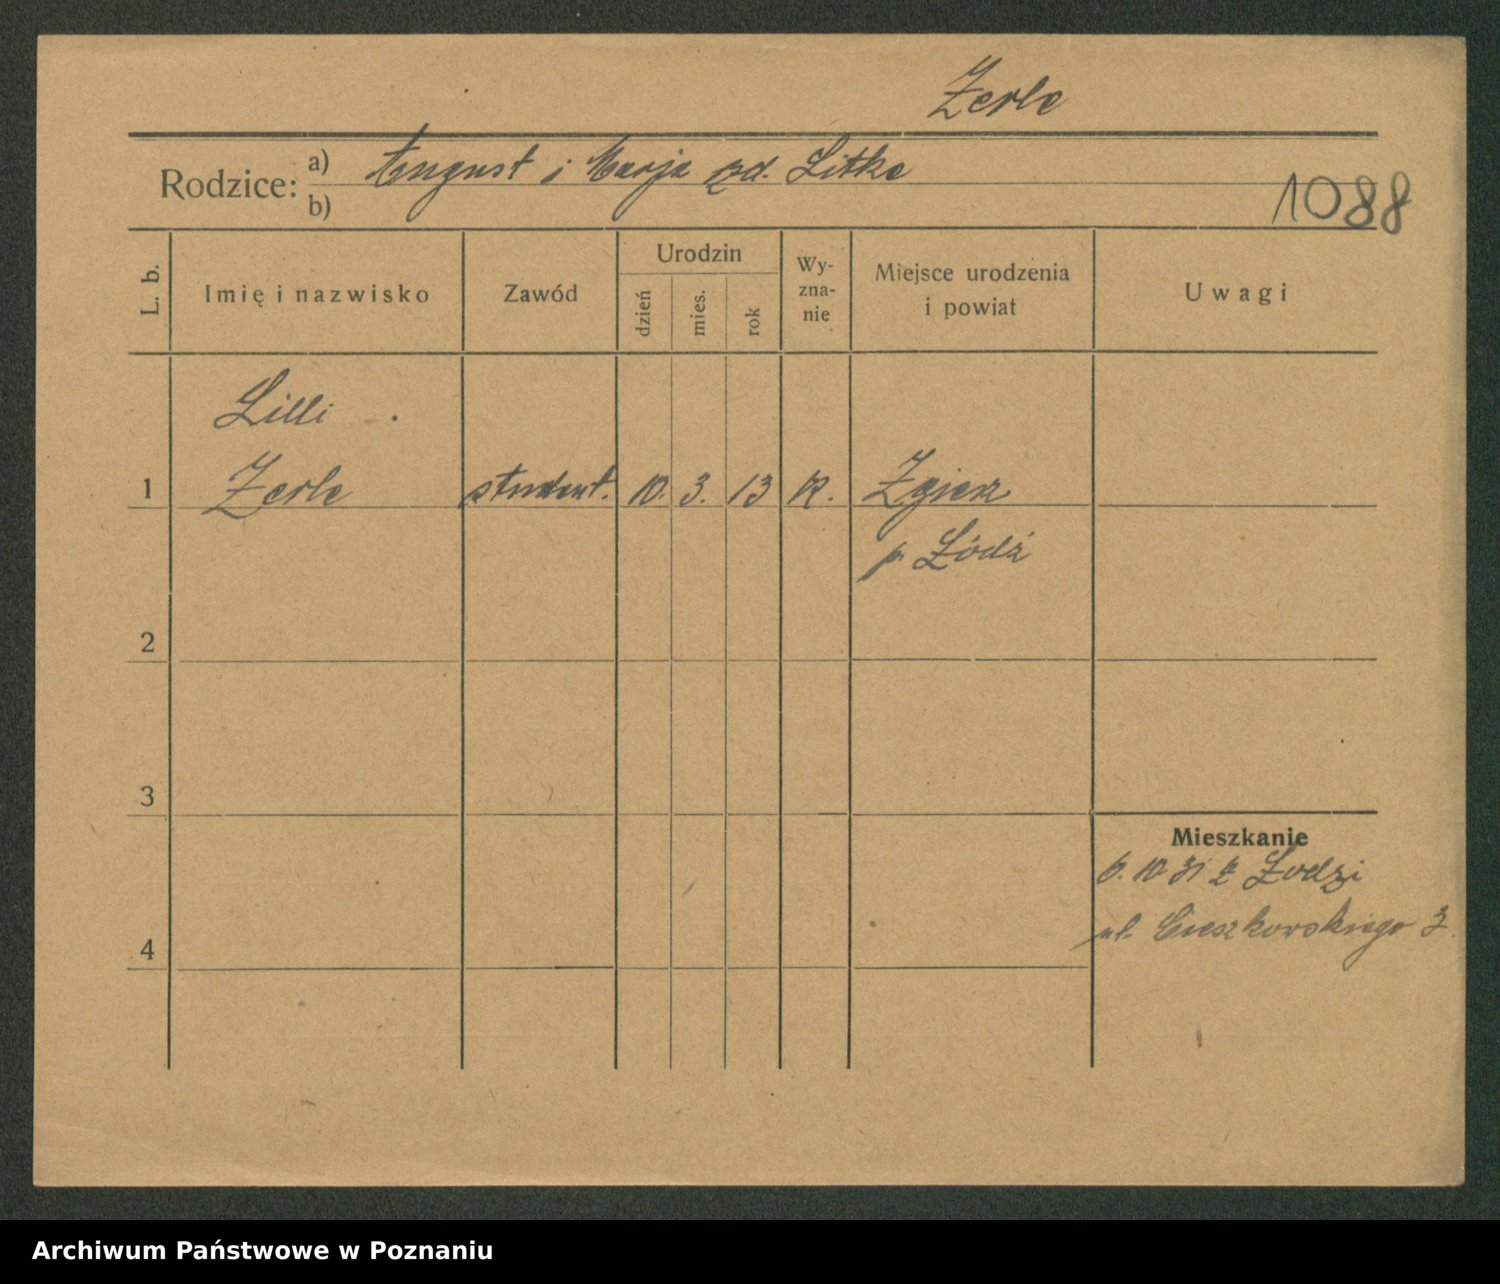 Zerle
Rodzice: a) August i Marja zd. Litke
b)
1088
L. b.
Imię i nazwisko
Zawód
Urodzin
dzień
mies.
rok
Wy-
zna-
nie
Miejsce urodzenia
i powiat
Uwagi
Lilli
1 Zerle student. 10. 3. 13 Zgierz
p. Łódź
2
3
Mieszkanie
6. 10 31 z Łodzi
ul. Cieszkowskiego 3
4
Archiwum Państwowe w Poznaniu